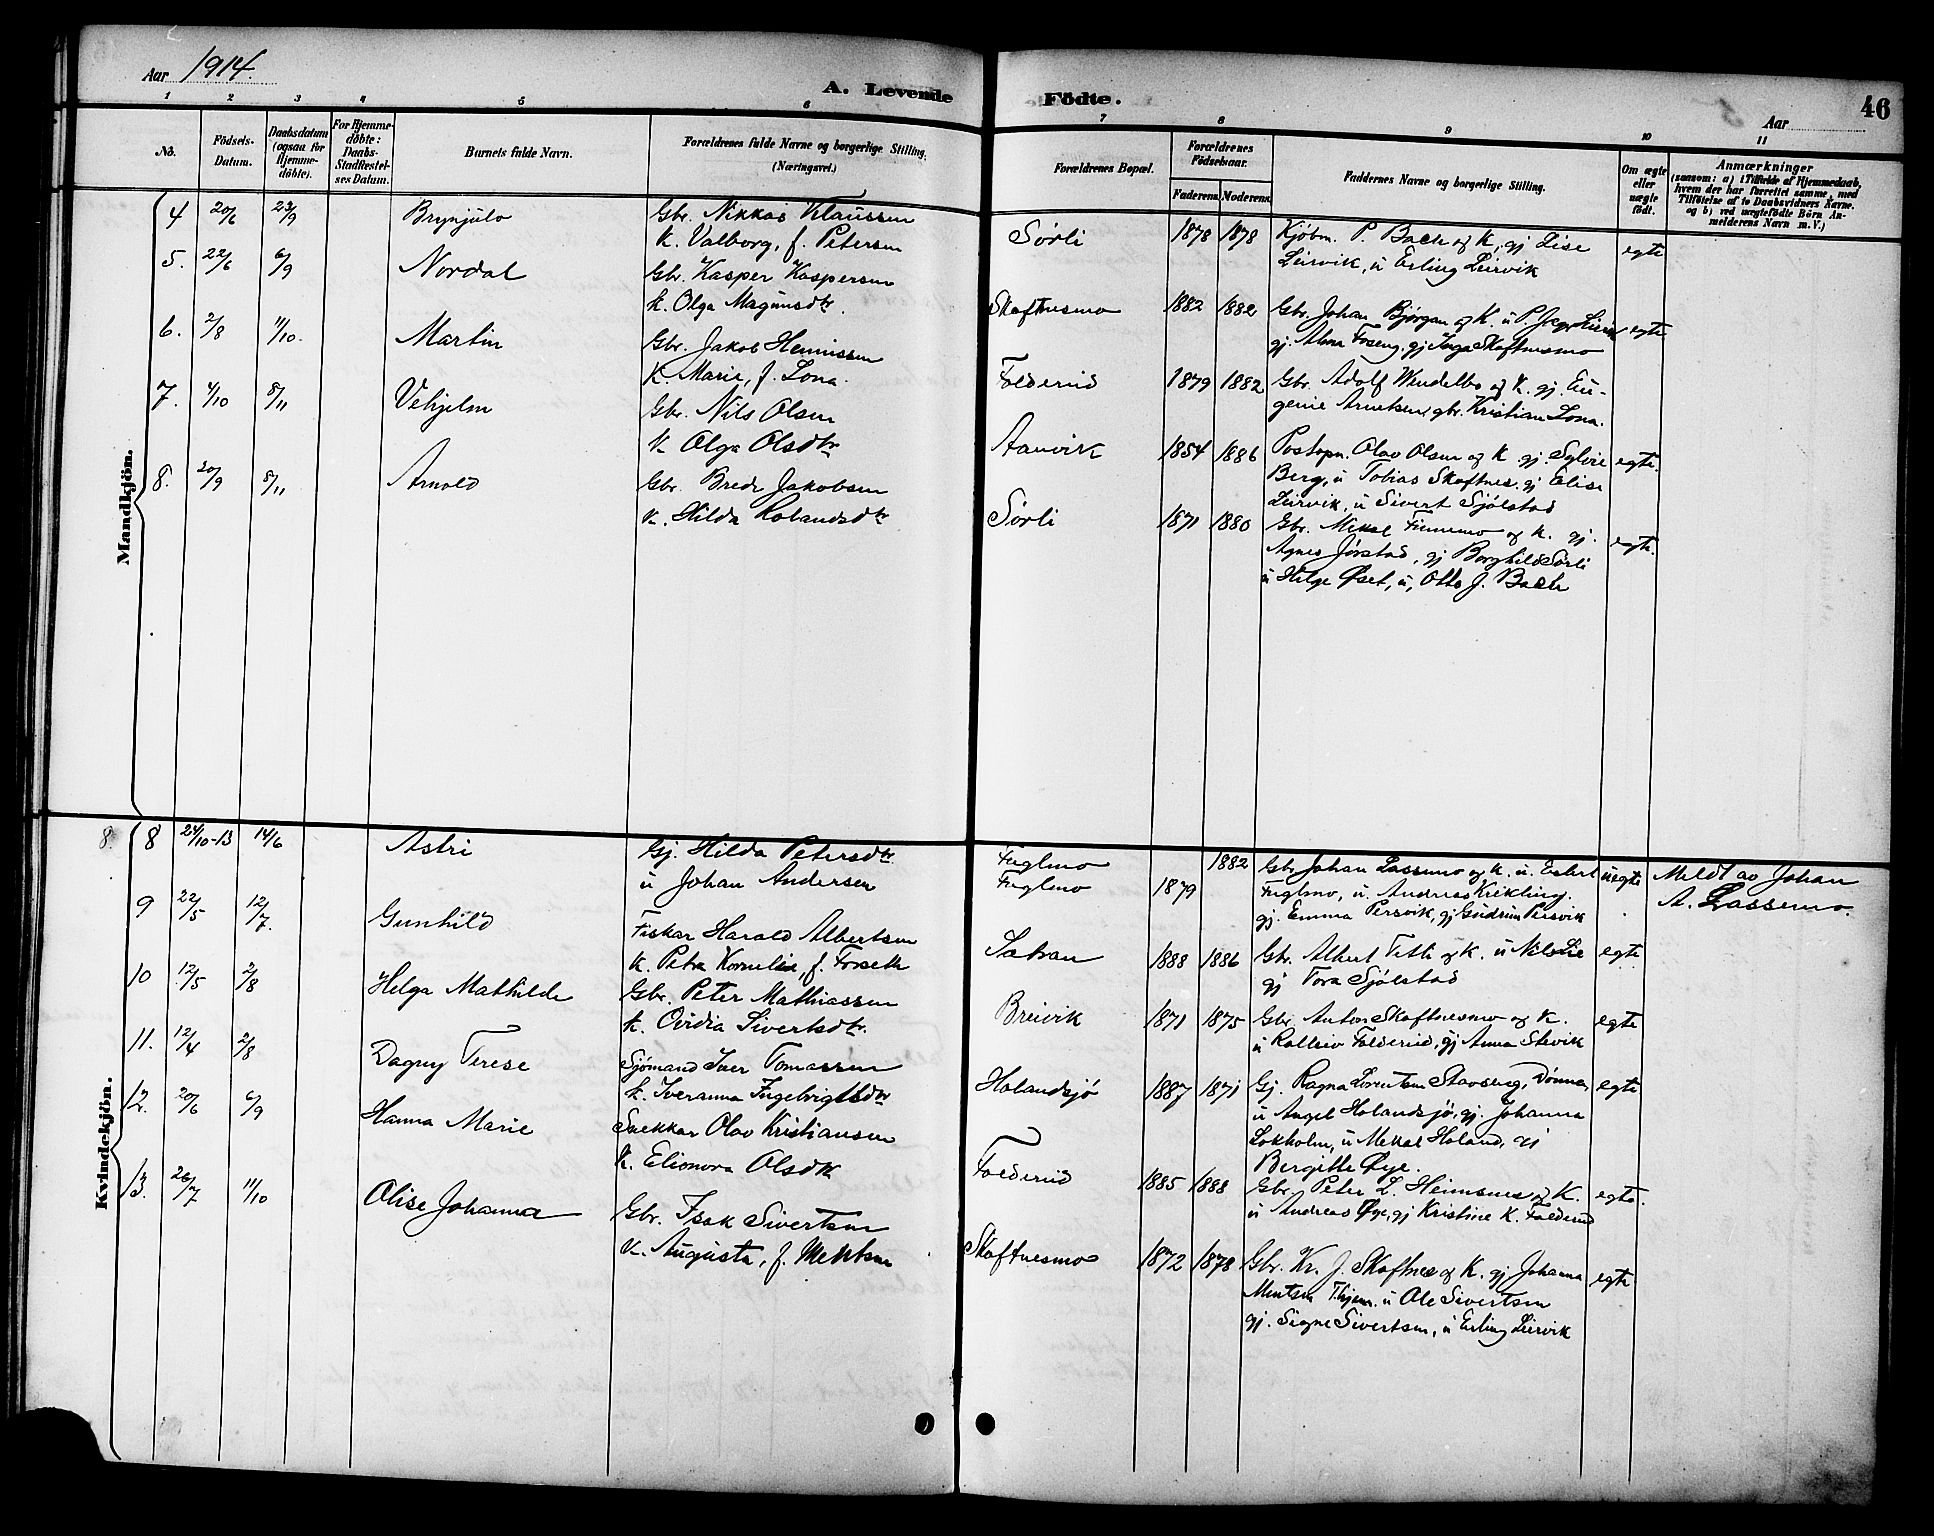 Aar 1914.
A. Levende Födte.
Aar
46
1 2 3 4 5 6 7 8 9 10 11
No.
Födsels-Datum.
Daabsdatum (ogsaa for Hjemme-döbte).
For Hjemme-döbte: Daabs-Stadfæstel-ses Datum.
Barnets fulde Navn.
Forældrenes fulde Navne og borgerlige Stilling. (Næringsvei.)
Forældrenes Bopæl.
Forældrenes Födselsaar.
Faderens. Moderens.
Faddernes Navne og borgerlige Stilling.
Om ægte eller uægte födt.
Anmærkninger
(saasom: a) i Tilfælde af Hjemmedaab,
hvem der har forrettet samme, med
Tilföielse af to Daabsvidners Navne.
og b) ved uægtefödte Börn An-
melderens Navn m. V.)
Mandkjön.
4 20/6 23/9 Brynjulv Gbr. Nikkas Klaussen
K. Valborg, f. Petersen
Sørli 1878 1878 Kjøbm. P. Bach og K, gj Lise
Leirvik, u Erling Leirvik
egte
5. 22/6 6/9 Nordal Gbr. Kasper Kaspersen
k. Olga Magnusdtr.
Skaftnesmo 1882 1882 Gbr. Johan Bjørgan og K. u P.
gj. Alma Foseng, gj Inga Skaftnesmo
egte
6. 2/8 11/10. Martin Gbr. Jakob Henrissen
K. Marie, f. Lona.
Foldereid 1879 1882 Gbr. Adolf Wendelbo og K. gj. Eu-
genie Arnetsen, gbr. Kristian Lona.
7. 4/10 8/11 Vehjelm Gbr. Nils Olsen
K Olga Olsdtr
Aanvik 1854 1886 Postopn. Olav Olsen og K gj. Sylvie
Berg, u Tobias Skaftnes, gj Elise
Leirvik, u Sivert Sjølstad
egte.
8. 20/9 8/11 Arnold Gbr. Bredr Jakobsen
K. Hilda Rolandsdtr
Sørli 1871 1880 Gbr. Mikal Finnemo og K. gj.
Agnes Jørstad, gj Borghild Sørli
u Helge Øset, u, Otto J. Bach
egte.
Kvindekjön.
8. 8 24/10-13 14/6 Astri Gj. Hilda Petersdtr.
u Johan Andersen
Fuglmo 1882
Fuglmo 1879
Gbr Johan Lassemo og K. u. Eilert
Fuglmo, u. Andreas Krikling.
gj. Emma Persvik, gj Gudrun Persvik
uegte
Meldt av Johan
A. Lassemo.
9 22/5 12/7. Gunhild Fiskar Harald Albertsen
K. Petra Kornelie, f. Forseth
Satran 1888 1886 Gbr. Albert Tetli og K. u Nils Lie
gj Tora Sjølstad
egte
10 12/5 2/8 Helga Mathilde Gbr. Peter Mathiassen
k. Ovidia Sivertsdtr.
Breivik 1871 1875 Gbr. Anton Skaftnesmo og K.
u Rolleiv Foldereid, gj Anna Steivik
egte
11. 12/4 2/8 Dagny Terese Sjømand Iver Tomassen
k. Iveranna Ingebrigtsdtr
Holandsjø 1887 1871 Gj. Ragna Lorentsen Stavseng, Dønna,
u Angel Holandsjø, gj. Johanna
Lokholm, u Mikal Holand, gj
Bergitte Øye.
egte
12. 20/6 6/9 Hanna Marie Snekkar Olav Kristiansen
K. Elionora Olsdtr
Foldereid 1885 1888 Gbr. Peter L. Heimsnes og K.
u Andreas Øye, gj Kristine K. Foldereid
egte.
13. 26/7 11/10 Olise Johanna Gbr. Isak Sivertsen
K. Augusta, f. Mentsen
Skaftnesmo 1872 1878 Gbr. Kr. J. Skaftnes og K. gj Johanna
Mentsen Thjem. u Ole Sivertsen
gj. Signe Sivertsen, u Erling Leirvik
egte